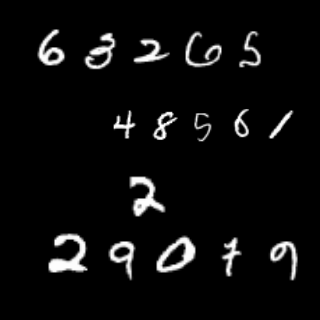 63265
48561
2
29079